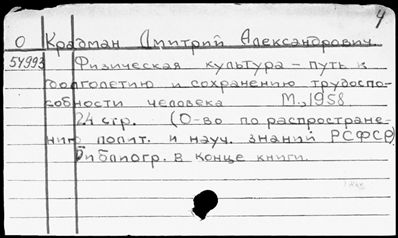 4
О Крадман Дмитрий Александрович.
54993 Физическая культура – путь к
долголетию и сохранению трудоспо-
собности человека М., 1958.
24 стр. (О-во по распростране-
нию полит. и науч. знаний РСФСР)
Библиогр. в конце книги.